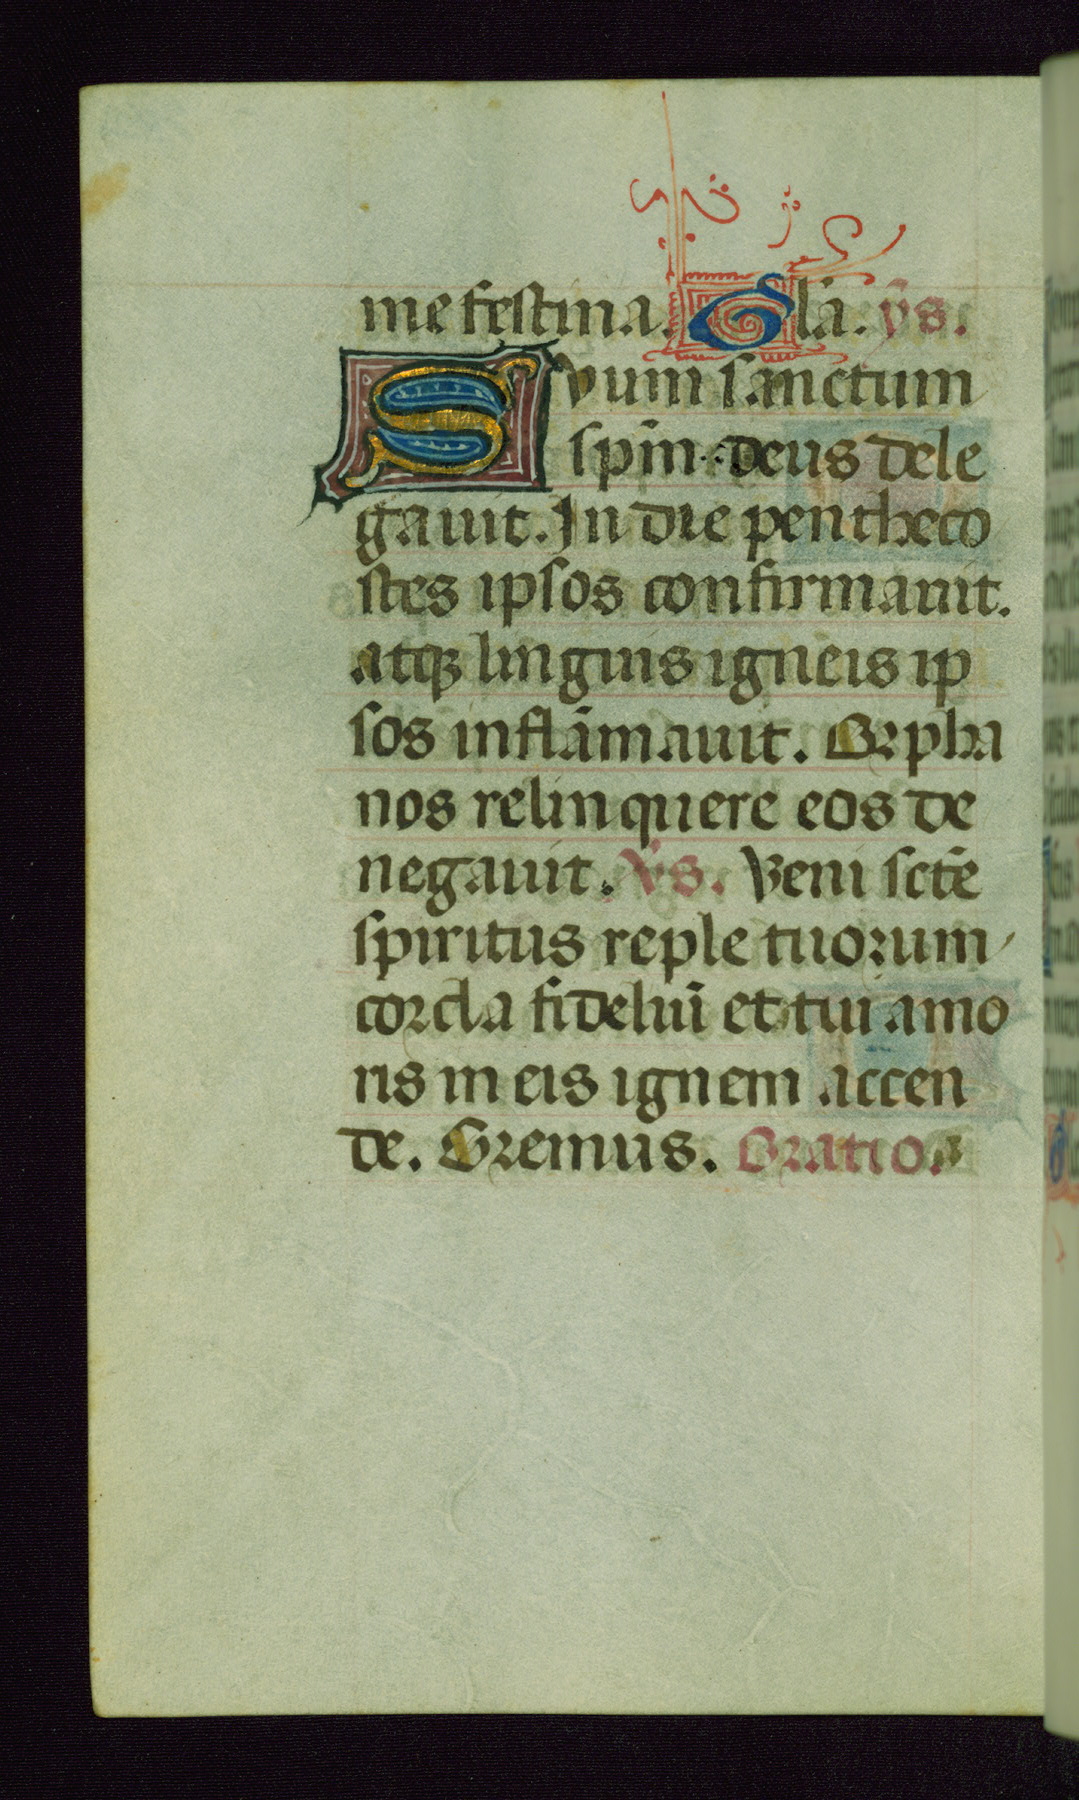 me festina. Gl̄a. ỹs.
Suum sanctum
sp̄m deus dele
gauit. In die pentheco
stes ipsos confirmauit.
atqꝫ linguis igneis ip
sos inflāmauit. Orpha
nos relinquere eos de
negauit. ỹs. Veni sctē
spiritus reple tuorum
corda fideliū et tui amo
ris in eis ignem accen
de. Oremus. Oratio.